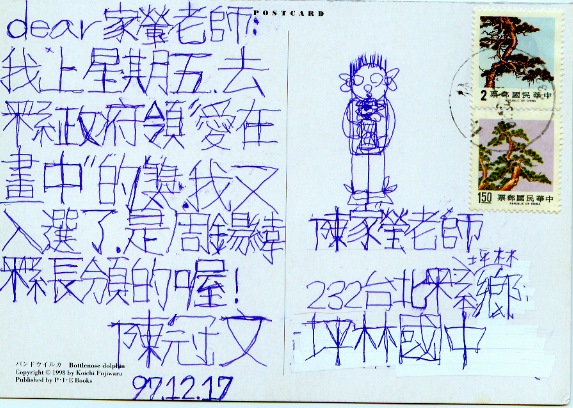 POSTCARD
dear 家瑩老師:
我上星期五去
縣政府領"愛在
畫中"的獎.我又
入選了.是周錫瑋
縣長領的喔!
陳冠文
97.12.17
陳家瑩老師
坪林
232台北縣鄉
坪林國中
2 票郵國民華中
REPUBLIC OF CHINA
150 票郵國民華中
REPUBLIC OF CHINA
バンドウイルカ Bottlenose dolphin
Copyright © 1998 by Koichi Fujiwara
Published by P·I·E Books